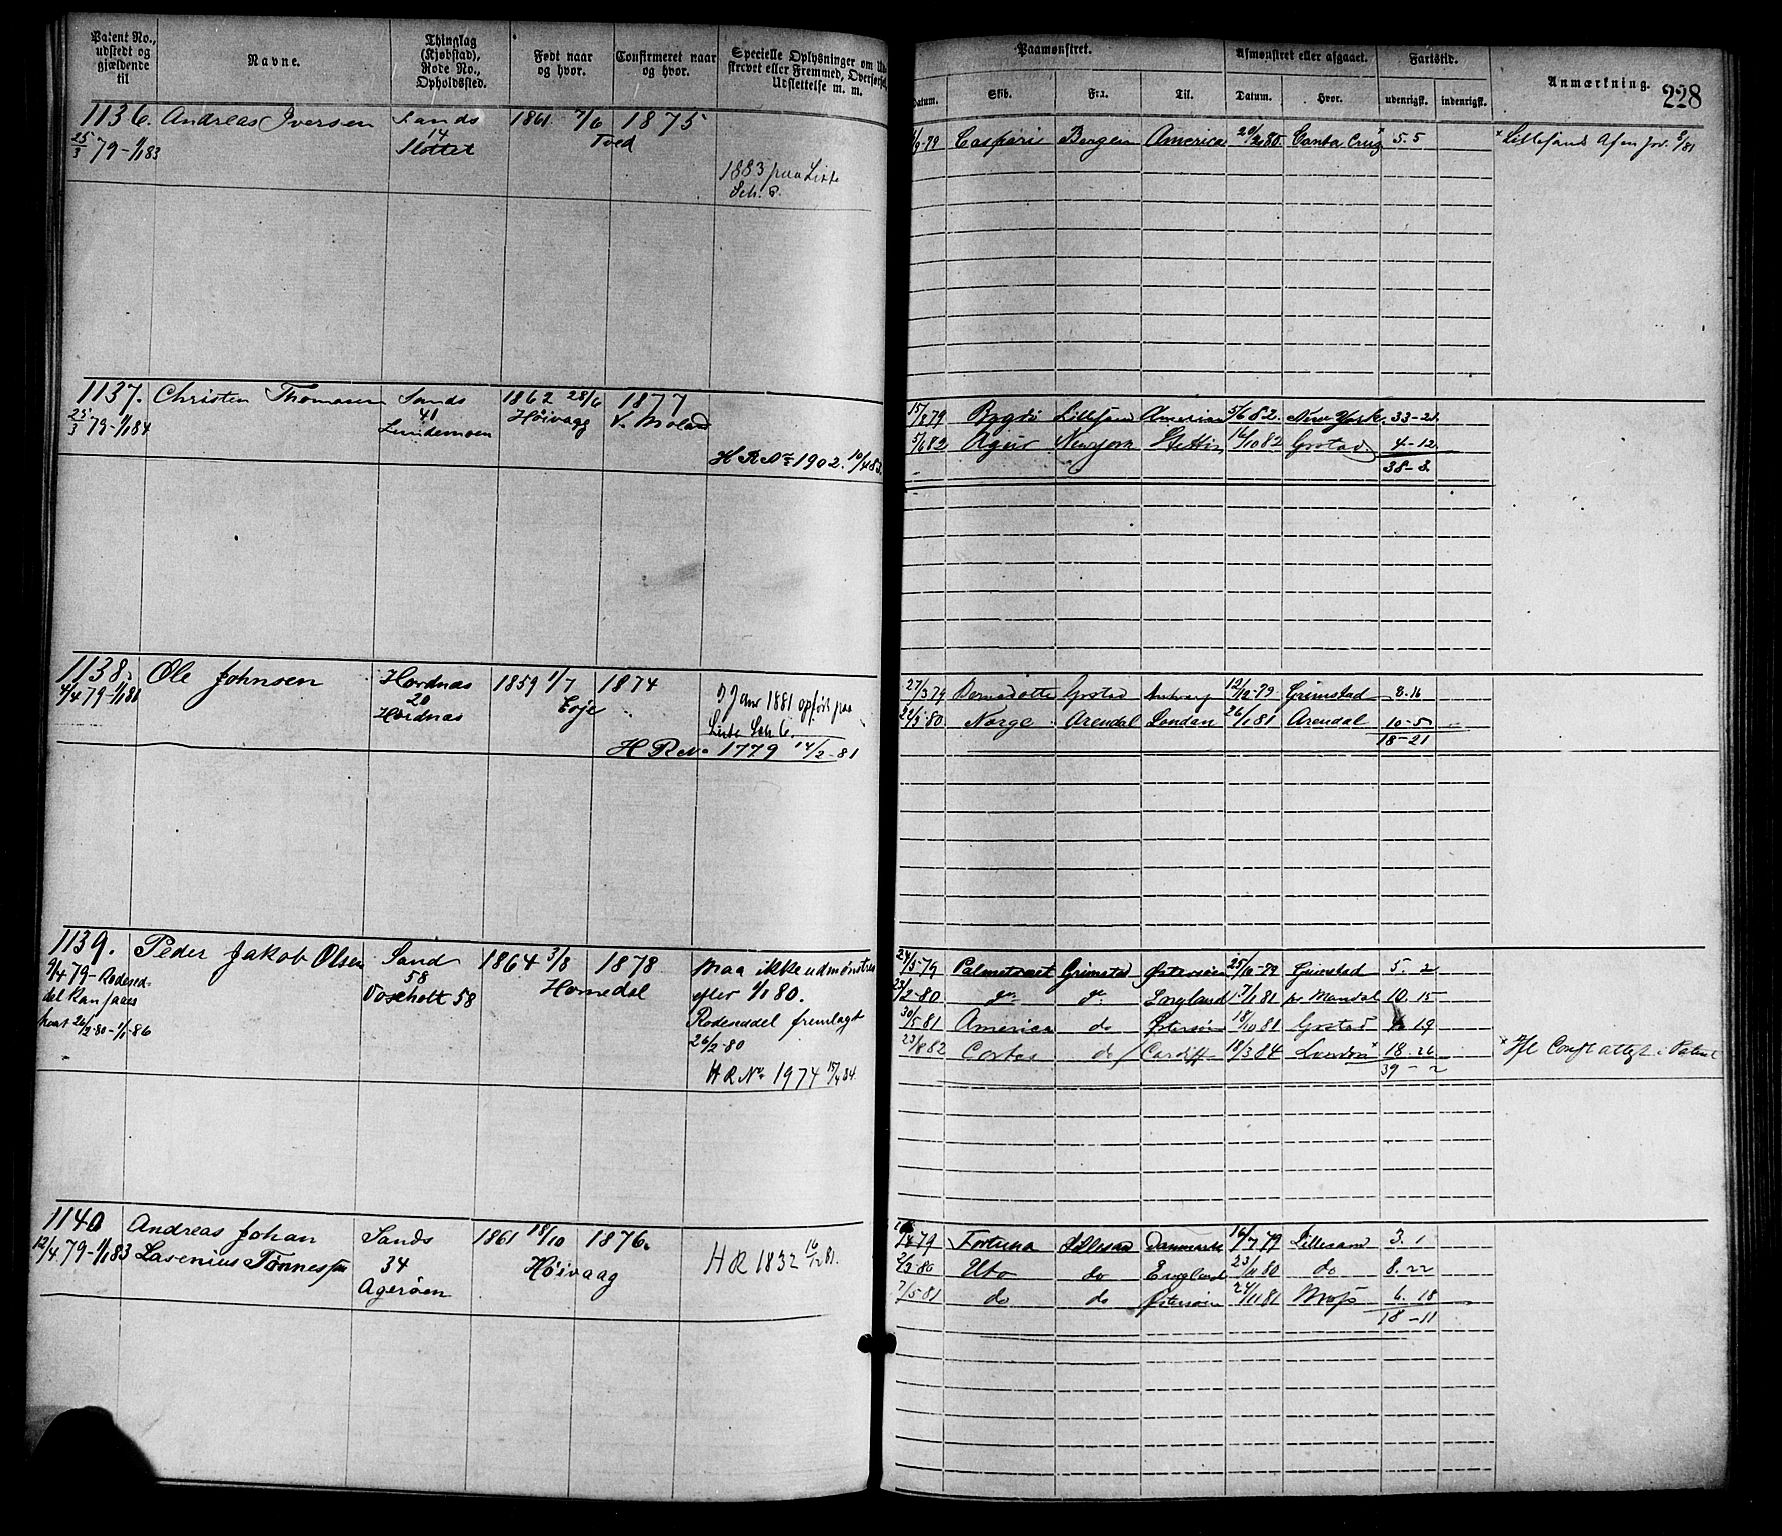 Patent No., udstedt og gjældende til
Navne.
Thinglag (Kjøbstad), Rode No., Opholdssted.
Født naar og hvor.
Confirmeret naar og hvor.
Specielle Oplysninger om
strevet eller Fremmed, Overført,
Udslettelse m. m.
Paamønstret.
Afmønstret eller afgaaet.
Fartstid.
Anmærkning.
228
Datum.
Skib.
Fra.
Til.
Datum.
Hvor.
udenrigsk.
indenrigsk.
1136. Andreas Iversen Sands 1861 7/6 1875
25/3 79-1/1 83 14 Tved
Slottet
1883 paa Liste
Sch. 6.
9-79 Casparie Bergen America 20/2 80. Santa Cruz x 5.5
1137. Christen Thomasen Sands 1862 28/6 1877
25/3 79-1/1 84 41 Høivaag V. Moland
Lindemoen
H R No 1902. 10/4 83
15/8 79 Bygdø Lillesan America 5/6 82. New York. 33-21
5/6 82 Agur Newyork Stettin 16/10 82 Grstad 4-12
38-3
1138. Ole Johnsen Hordnæs 1859 1/7 1874
4/4 79-1/1 81 20 Evje
Hordnæs
I Janr 1881 opført paa
Liste Sch 6.
H R No 1779 14/2-81
27/3 79 Bernadotte Grstad 12/12-79 Grimstad 8.16
22/3-80 Norge Arendal London 26/1 81 Arendal 10-5
18-21
1139. Peder Jakob Olsen Sand 1864 3/8 1878
9/4 79- Rodesed- 58 Homedal
del kan faaes Voxholt 58
26/2-80-1/1-86
Maa ikke udmønstres
efter 1/1 80.
Rodeseddel fremlagt
26/2-80
H R No 1974 15/4 84.
24/5-79 Grimstad Østersøen Grimstad 5. 2
23/2-80 do do England 17/1 81 pr Mandal 10. 15
30/5 81 America do Østersøen 18/10 81 Grstad 4 19
23/8 82 Cortes do Cardiff 18/3 84 London x 18. 26
39-2
1140 Andreas Johan Sands 1861 18/10 1876.
12/4 79-1/1 83 Lavenius Tønnessen 34 Høivaag
Agerøen
H R 1832 16/12 81.
79 Fortuna Lillesand Danmark 16/7 79 Lillesand 3. 1
2/3-80 Uto do England 23/11 80 do 8.22
7/5-81 do do Østersøen 24/11 81 Moss 6. 18
18-11